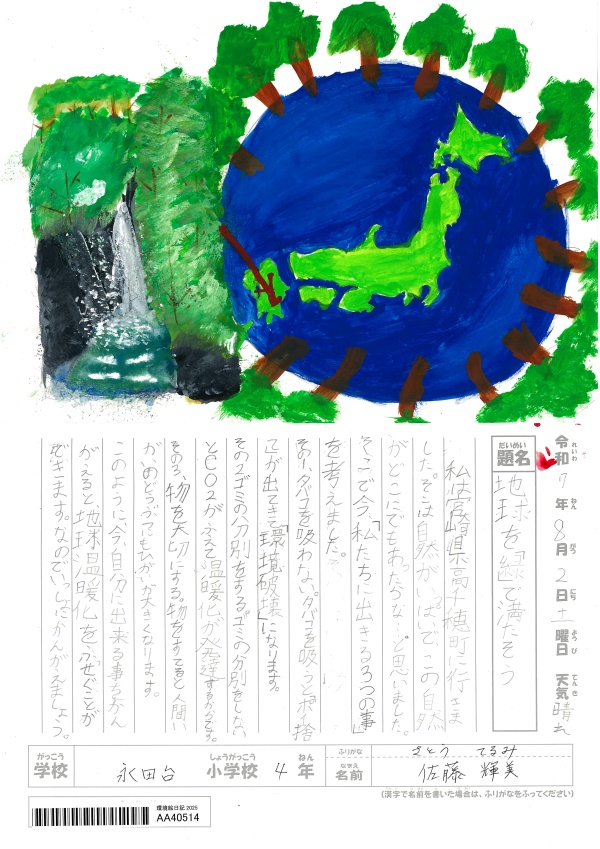 令和7年8月2日土曜日 天気晴れ
れいわ ねん がつ にち ようび てんき
題名 地球を緑で満たそう
だいめい
私は宮崎県高千穂町に行きま
した。そこは自然がいっぱいで、この自然
がどこにでもあったらな…と思いました。
そこで今、「私たちに出きる3つの事」
を考えました。
その1、タバコを吸わない。タバコを吸うとポイ捨
てが出てきて「環境破壊」になります。
その2ゴミの分別をする。ゴミの分別をしない
とCO2がふえて温暖化が発達するからです。
その3、物を大切にする。物をすてると人間い
がめどうでにもちがいが大きくなります。
このように今、自分に出来る事をかん
がえると、地球温暖化をふせぐことが
できます。なのでいっしょにかんがえましょう。
学校 永田台 小学校 4年
がっこう しょうがっこう ねん
名前 佐藤 輝美
ふりがな さとう てるみ
なまえ
(漢字で名前を書いた場合は、ふりがなをふってください)
環境絵日記 2025
AA40514